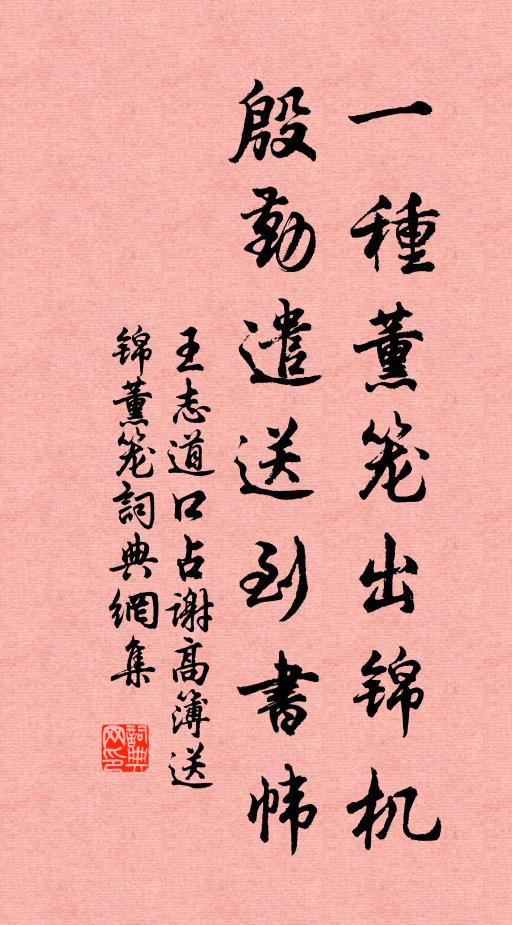 一種薰笼出锦机
殷勤遣送到書帏
王志道口占谢高簿送
锦薰笼詞典網集
詞典网印